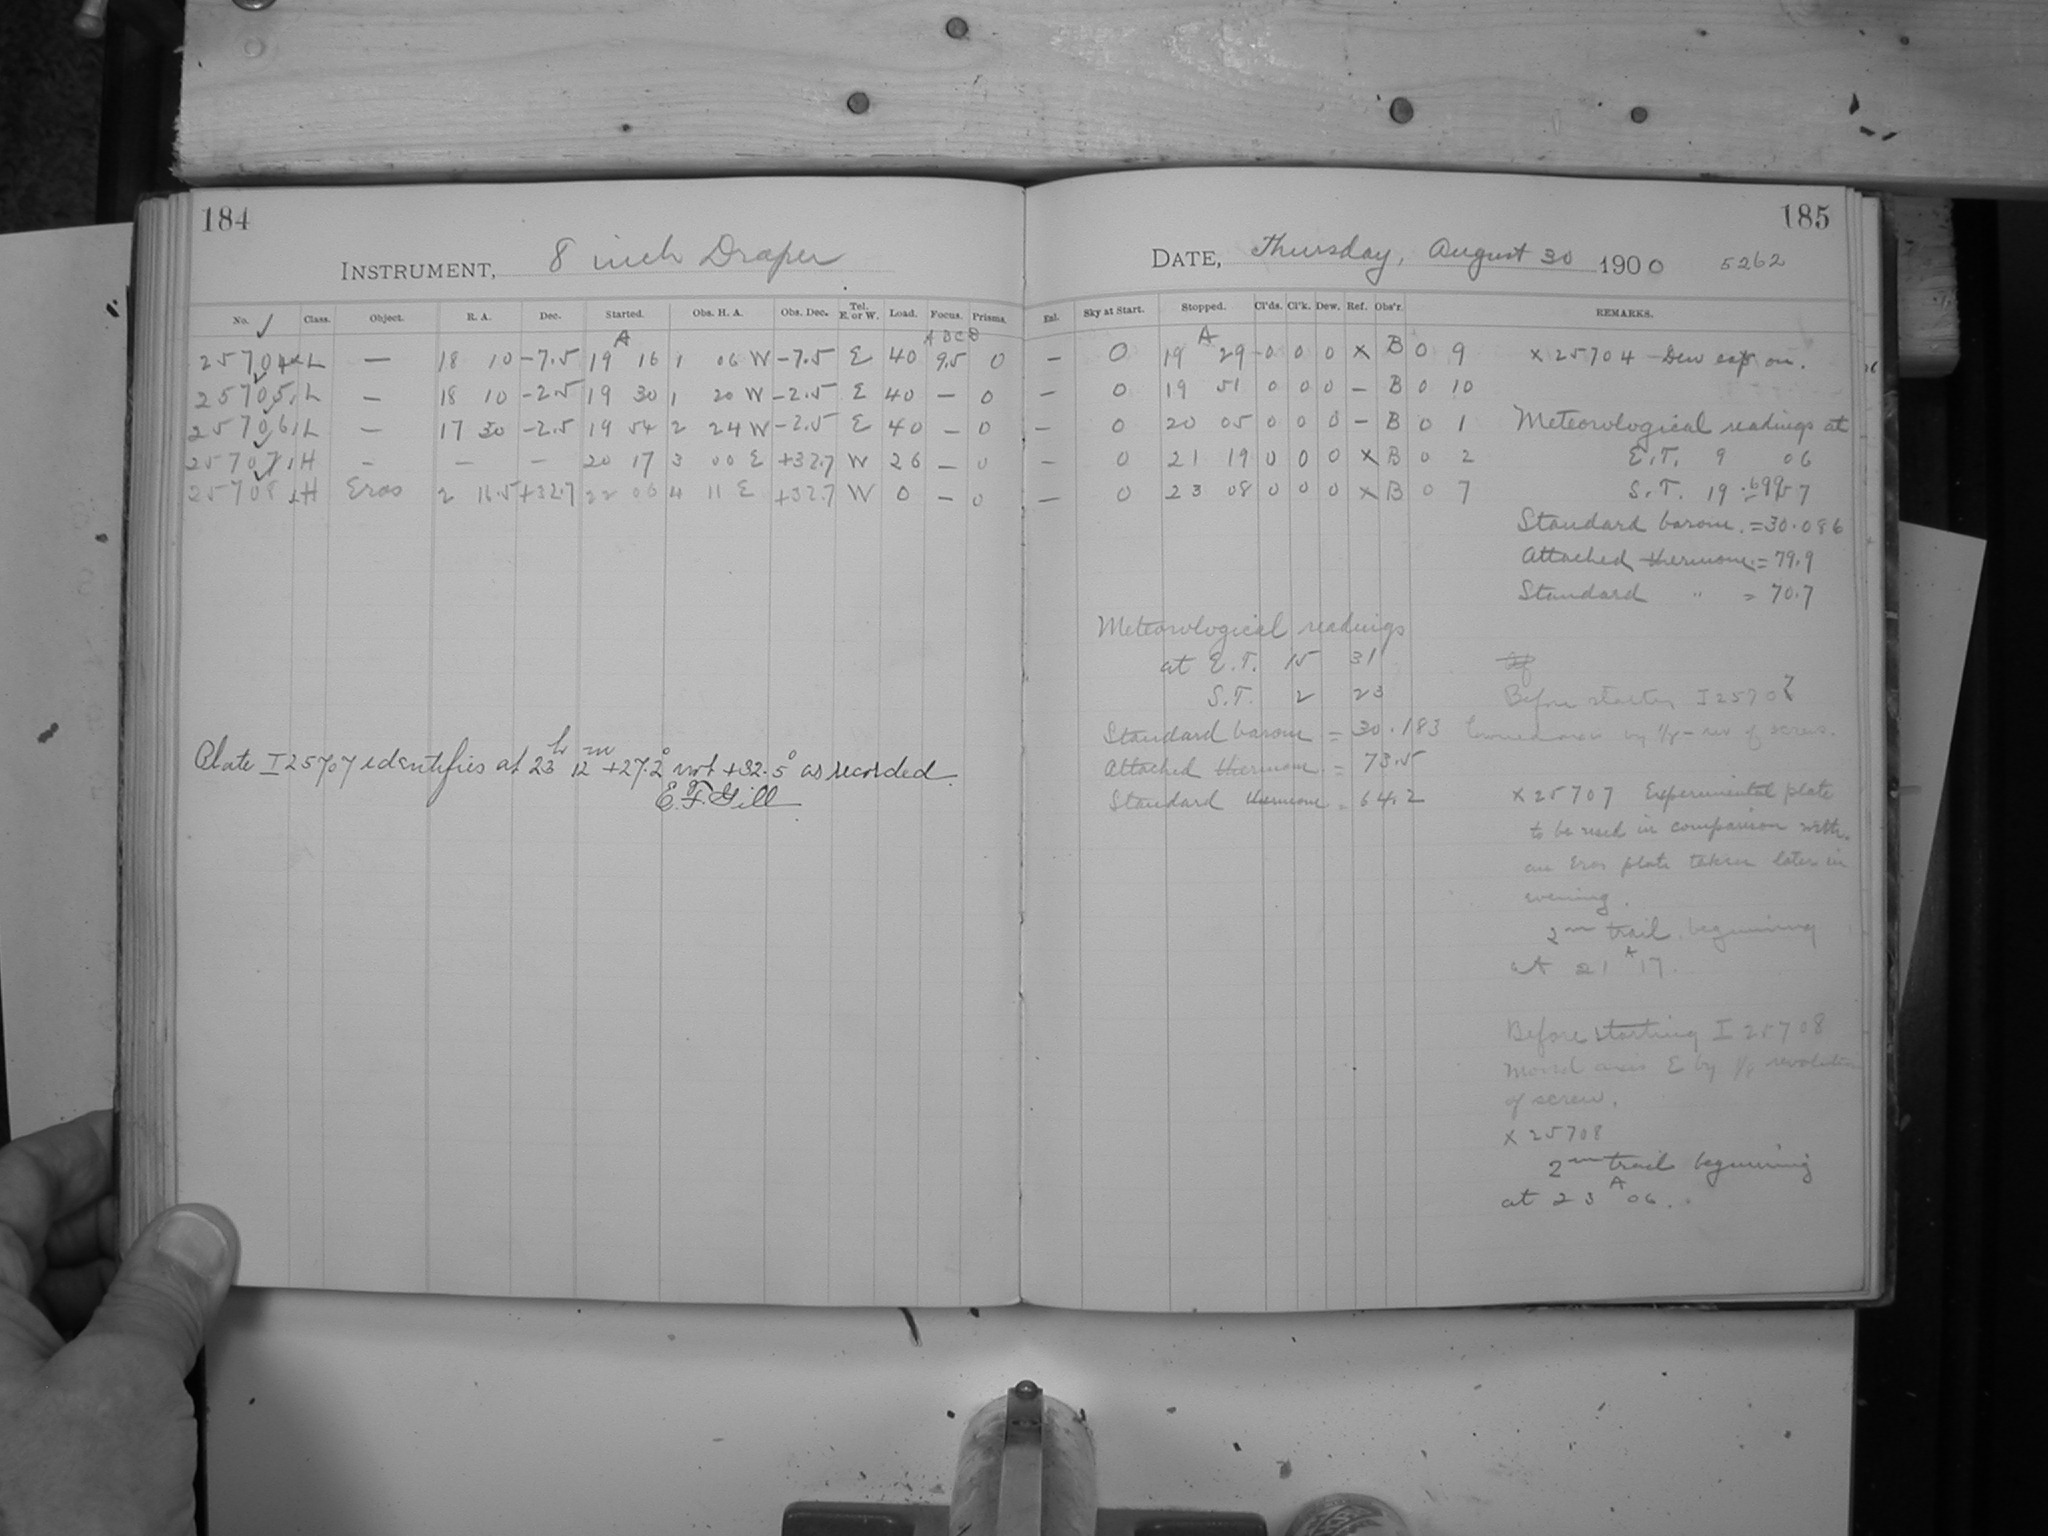 184
INSTRUMENT, 8 inch Draper
No. Class. Object. R. A. Dec. Started. Obs. H. A. Obs. Dec. Tel. E. or W. Load. Focus. Prisms.
A A B C D
25704 x L — 18 10 -7.5 19 16 1 06 W -7.5 E 40 9.5 0
25705 L — 18 10 -2.5 19 30 1 20 W -2.5 E 40 — 0
25706 L — 17 30 -2.5 19 54 2 24 W -2.5 E 40 — 0
25707 H — — — 20 17 3 00 E +32.7 W 26 — 0
25708 H Eros 2 16.5 +32.7 22 06 4 11 E +32.7 W 0 — 0
Plate I 25707 identifies at 23h 12m +27.2° not +32.5° as recorded.
E. F. Gill
185
DATE, Thursday, August 30 1900 5262
Enl. Sky at Start. Stopped. Cl'ds. Cl'k. Dew. Ref. Obs'r. REMARKS.
A
— 0 19 29 0 0 0 x B 0 9 x 25704 - Dew cap on.
— 0 19 51 0 0 0 — B 0 10
— 0 20 05 0 0 0 — B 0 1 Meteorological readings at
— 0 21 19 0 0 0 x B 0 2 E.T. 9 06
— 0 23 08 0 0 0 x B 0 7 S.T. 19
Standard barom. = 30.086
Attached thermom. = 79.9
Standard " = 70.7
Meteorological readings
at E.T. 15 31
S.T. 2 23
Standard barom = 30.183
Attached thermom. = 73.5
Standard thermom = 64.2
Before starting I 25707
by 1/8 - rev of screw.
x 25707 Experimental plate
to be used in comparison with
an Eros plate taken later in
evening.
2nd trail beginning
at 21 A 17.
Before starting I 25708
Moved axis E by 1/8 revolution
of screw.
x 25708
2nd trail beginning
at 23 A 06.